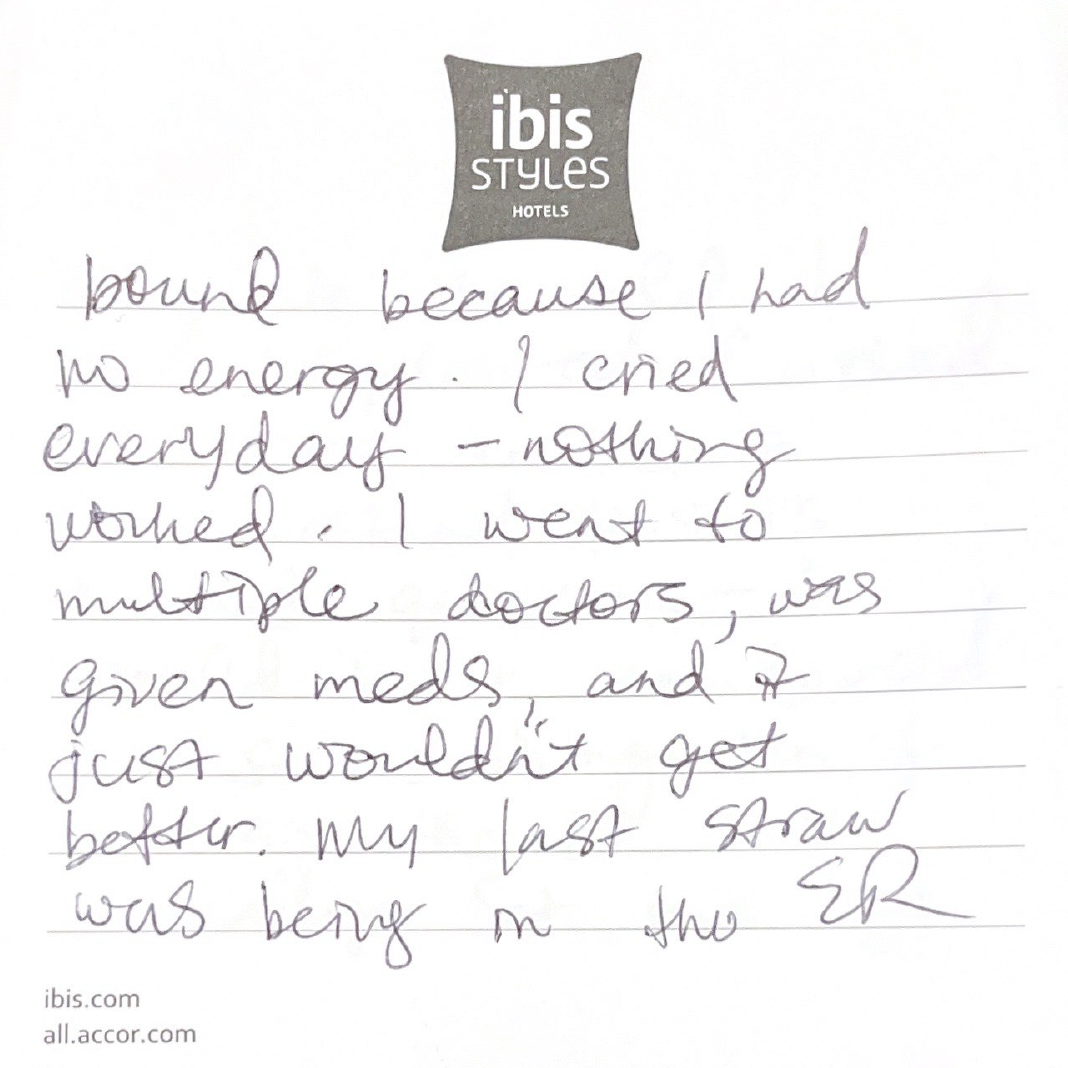 ibis
STYLES
HOTELS
bound because I had
no energy. I cried
everyday - nothing
worked. I went to
multiple doctors, was
given meds, and it
just wouldn't get
better. My last straw
was being in the ER
ibis.com
all.accor.com